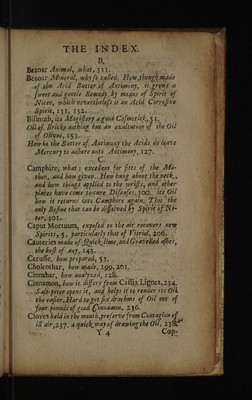 THE INDEX.
B,
Bezoar Animal, what, 311.
Bezoar Mineral, why so called. How, though made
of the Acid Butter of Antimony, it grows a
sweet and gentle Remedy by means of Spirit of
Niter, which nevertheless is an Acid Corrosive
Spirit, 131, 132.
Bismuth, its Magistery a good Cosmetick, 51.
Oil of Bricks nothing but an exaltation of the Oil
of Olives, 153.
How in the Butter of Antimony the Acids do leave
Mercury to adhere unto Antimony, 127.
C.
Camphire, what: excellent for fits of the Mo-
ther, and how given. How hung about the neck,
and how things applied to the wrists, and other
places have come to cure Diseases, 300. its Oil
how it returns into Camphire again. This the
only Rosine that can be dissolved by Spirit of Ni-
ter, 301.
Caput Mortuum, exposed to the air recovers new
Spirits, 5. particularly that of Vitriol, 206.
Cauteries made of Quick-lime, and Gravelled ashes,
the best of any, 143.
Cerusse, how prepared, 53.
Cholcothar, how made, 199, 201.
Cinnabar, how analyzed, 128.
Cinnamon, how it differs from Cassia Lignea, 234.
Salt-peter opens it, and helps it to render its Oil
the easier. Hard to get six drachms of Oil out of
four pounds of good Cinnamon, 236.
Cloves held in the mouth, preserve from Contagion of
ill air, 237. a quick way of drawing the Oil, 238.
Y 4 Cop-